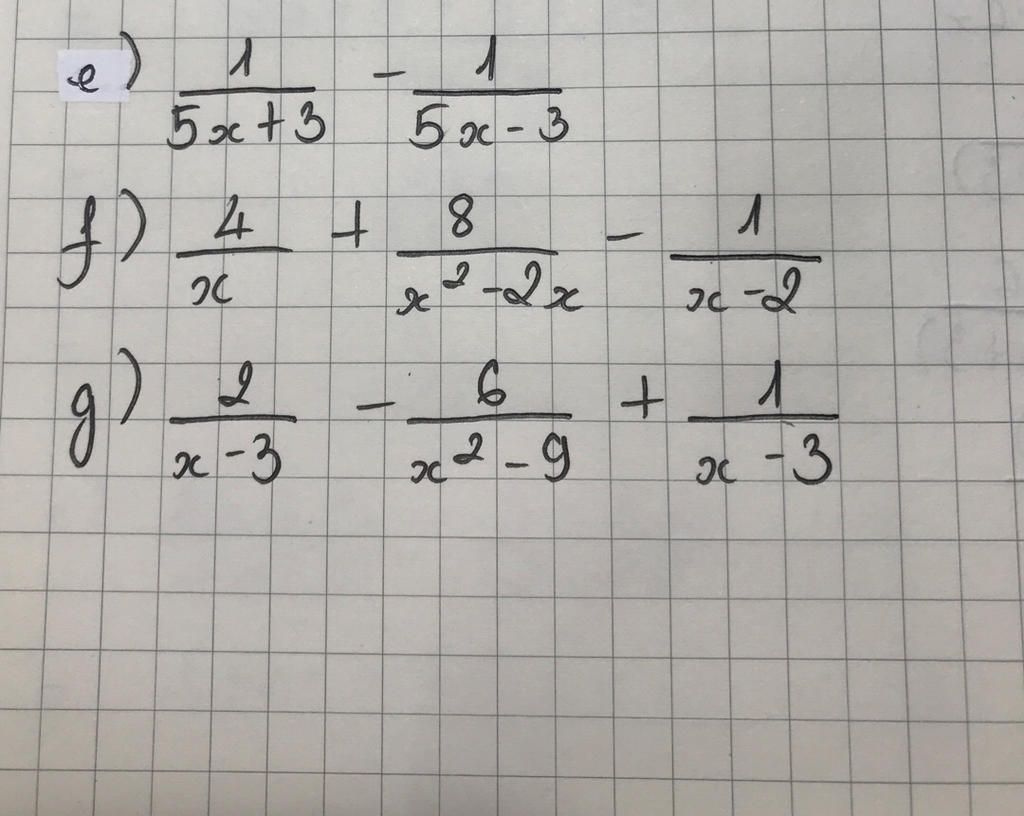 e) \frac{1}{5x+3} - \frac{1}{5x-3}
f) \frac{4}{x} + \frac{8}{x^2-2x} - \frac{1}{x-2}
g) \frac{2}{x-3} - \frac{6}{x^2-9} + \frac{1}{x-3}